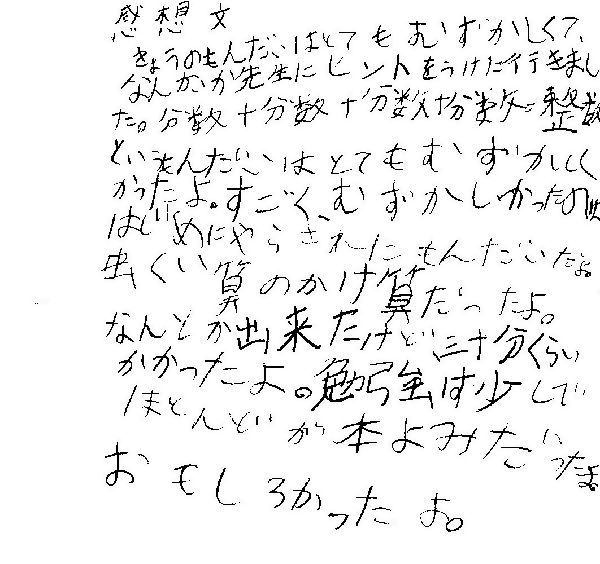 感想文
きょうのもんだいはとてもむずかしくて、
なんかいか先生にヒントをうけに行きまし
た。分数+分数+分数+分数=整数
といもんだいはとてもむずかしく
かったよ。すごくむずかしかったのは
はじめにやらされたもんだいだよ。
虫くい算のかけ算だったよ。
なんとか出来たけど、三十分くらい
かかったよ。勉強は少しで
ほとんどが本よみだったよ。
おもしろかったよ。